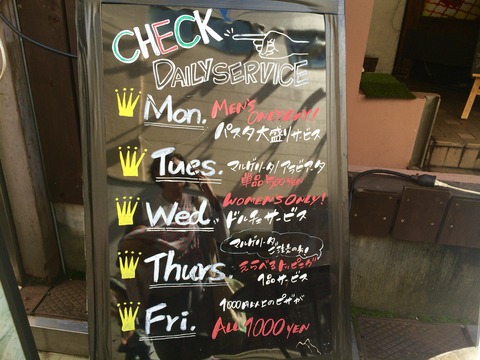 CHECK
DAILY SERVICE
Mon. MEN'S ONLY DAY!!
パスタ大盛りサービス
Tues. マルゲリータ/アラビアータ
単品500YEN
Wed. WOMEN'S ONLY!
ドルチェサービス
Thurs. マルゲリータ
ご注文の方
えらべるトッピング
1品サービス
Fri. 1000円以上のピザが
ALL 1000 YEN